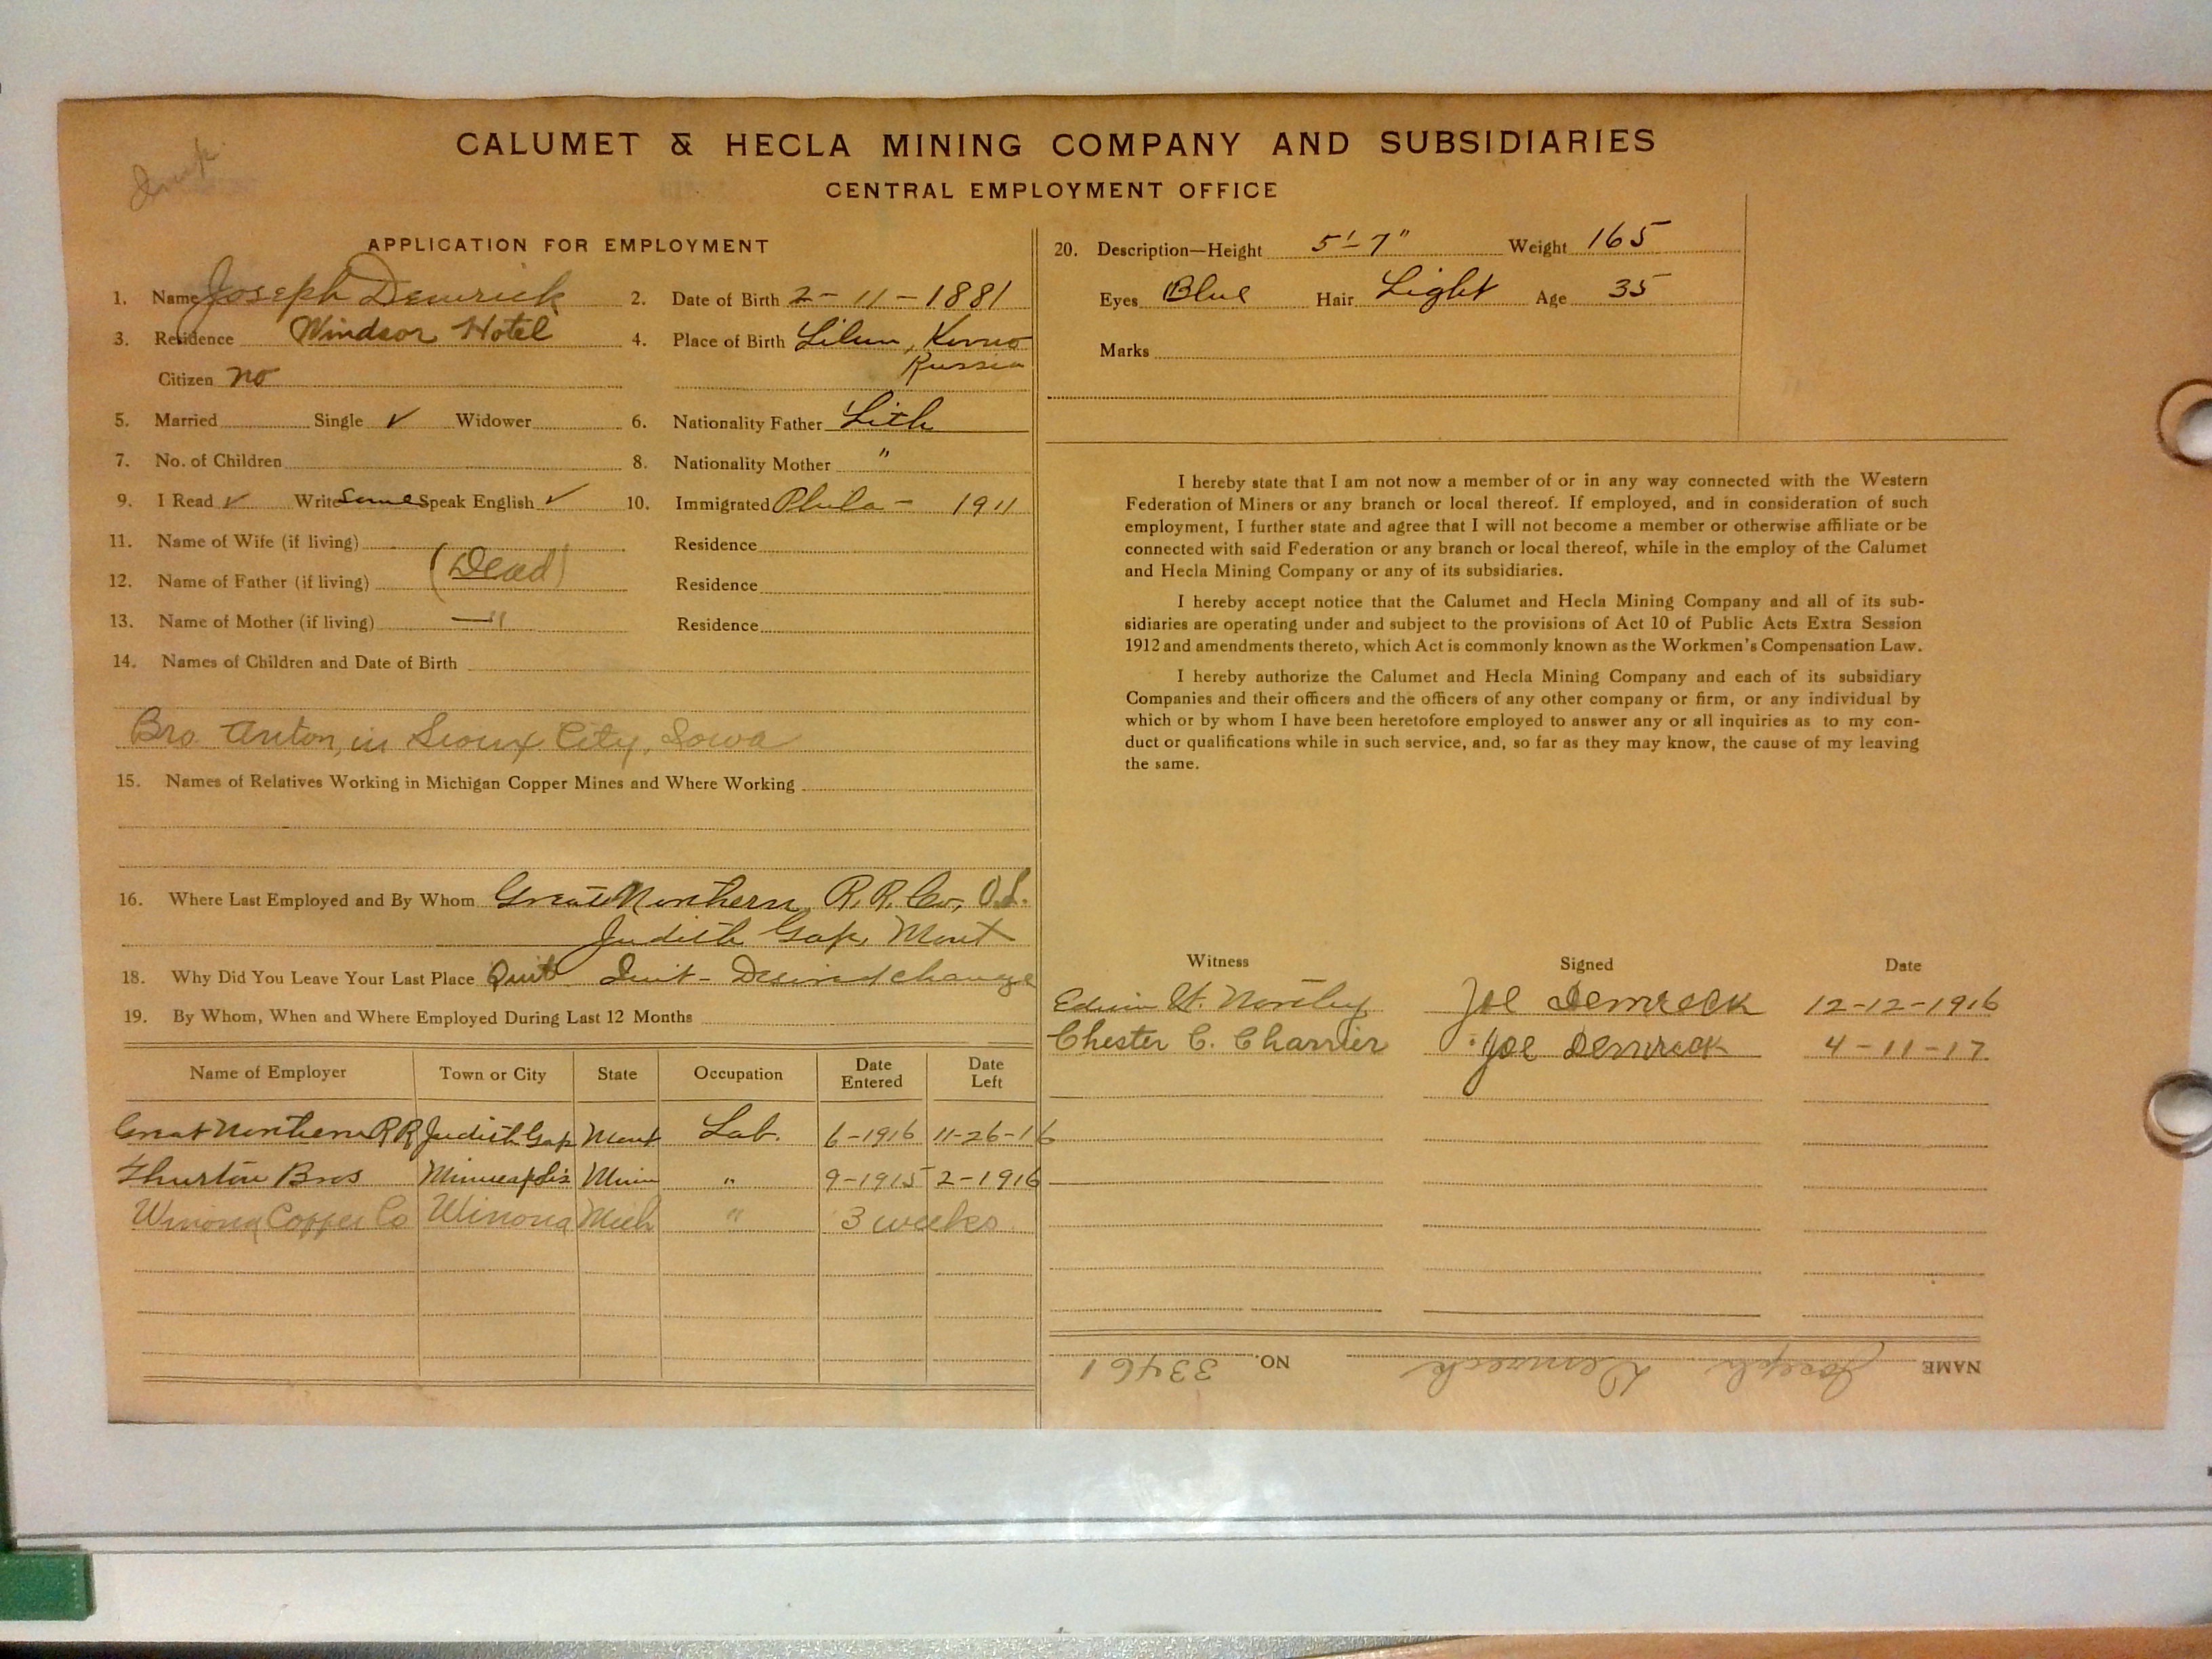 CALUMET & HECLA MINING COMPANY AND SUBSIDIARIES
CENTRAL EMPLOYMENT OFFICE
APPLICATION FOR EMPLOYMENT
1. Name Joseph Demrick 2. Date of Birth 2-11-1881
3. Residence Windsor Hotel 4. Place of Birth Kovno
Citizen no Russia
5. Married Single ✓ Widower 6. Nationality Father Lith
7. No. of Children 8. Nationality Mother "
9. I Read ✓ Write some Speak English ✓ 10. Immigrated Phila - 1911
11. Name of Wife (if living) Residence
12. Name of Father (if living) (Dead) Residence
13. Name of Mother (if living) — " Residence
14. Names of Children and Date of Birth
Bro. Anton, in Sioux City, Iowa
15. Names of Relatives Working in Michigan Copper Mines and Where Working
16. Where Last Employed and By Whom Great Northern R.R. Co,
Judith Gap, Mont
18. Why Did You Leave Your Last Place Quit Quit - Desired change
19. By Whom, When and Where Employed During Last 12 Months
Name of Employer Town or City State Occupation Date Entered Date Left
Great Northern RR Judith Gap Mont Lab. 6-1916 11-26-16
Thurton Bros Minneapolis Minn " 9-1915 2-1916
Winona Copper Co Winona Mich " 3 weeks
20. Description—Height 5'-7" Weight 165
Eyes Blue Hair Light Age 35
Marks
I hereby state that I am not now a member of or in any way connected with the Western
Federation of Miners or any branch or local thereof. If employed, and in consideration of such
employment, I further state and agree that I will not become a member or otherwise affiliate or be
connected with said Federation or any branch or local thereof, while in the employ of the Calumet
and Hecla Mining Company or any of its subsidiaries.
I hereby accept notice that the Calumet and Hecla Mining Company and all of its sub-
sidiaries are operating under and subject to the provisions of Act 10 of Public Acts Extra Session
1912 and amendments thereto, which Act is commonly known as the Workmen's Compensation Law.
I hereby authorize the Calumet and Hecla Mining Company and each of its subsidiary
Companies and their officers and the officers of any other company or firm, or any individual by
which or by whom I have been heretofore employed to answer any or all inquiries as to my con-
duct or qualifications while in such service, and, so far as they may know, the cause of my leaving
the same.
Witness Signed Date
Edwin Joe Demreck 12-12-1916
Chester C. Charrier Joe Demreck 4-11-17
NAME Joseph Demreck NO. 33461